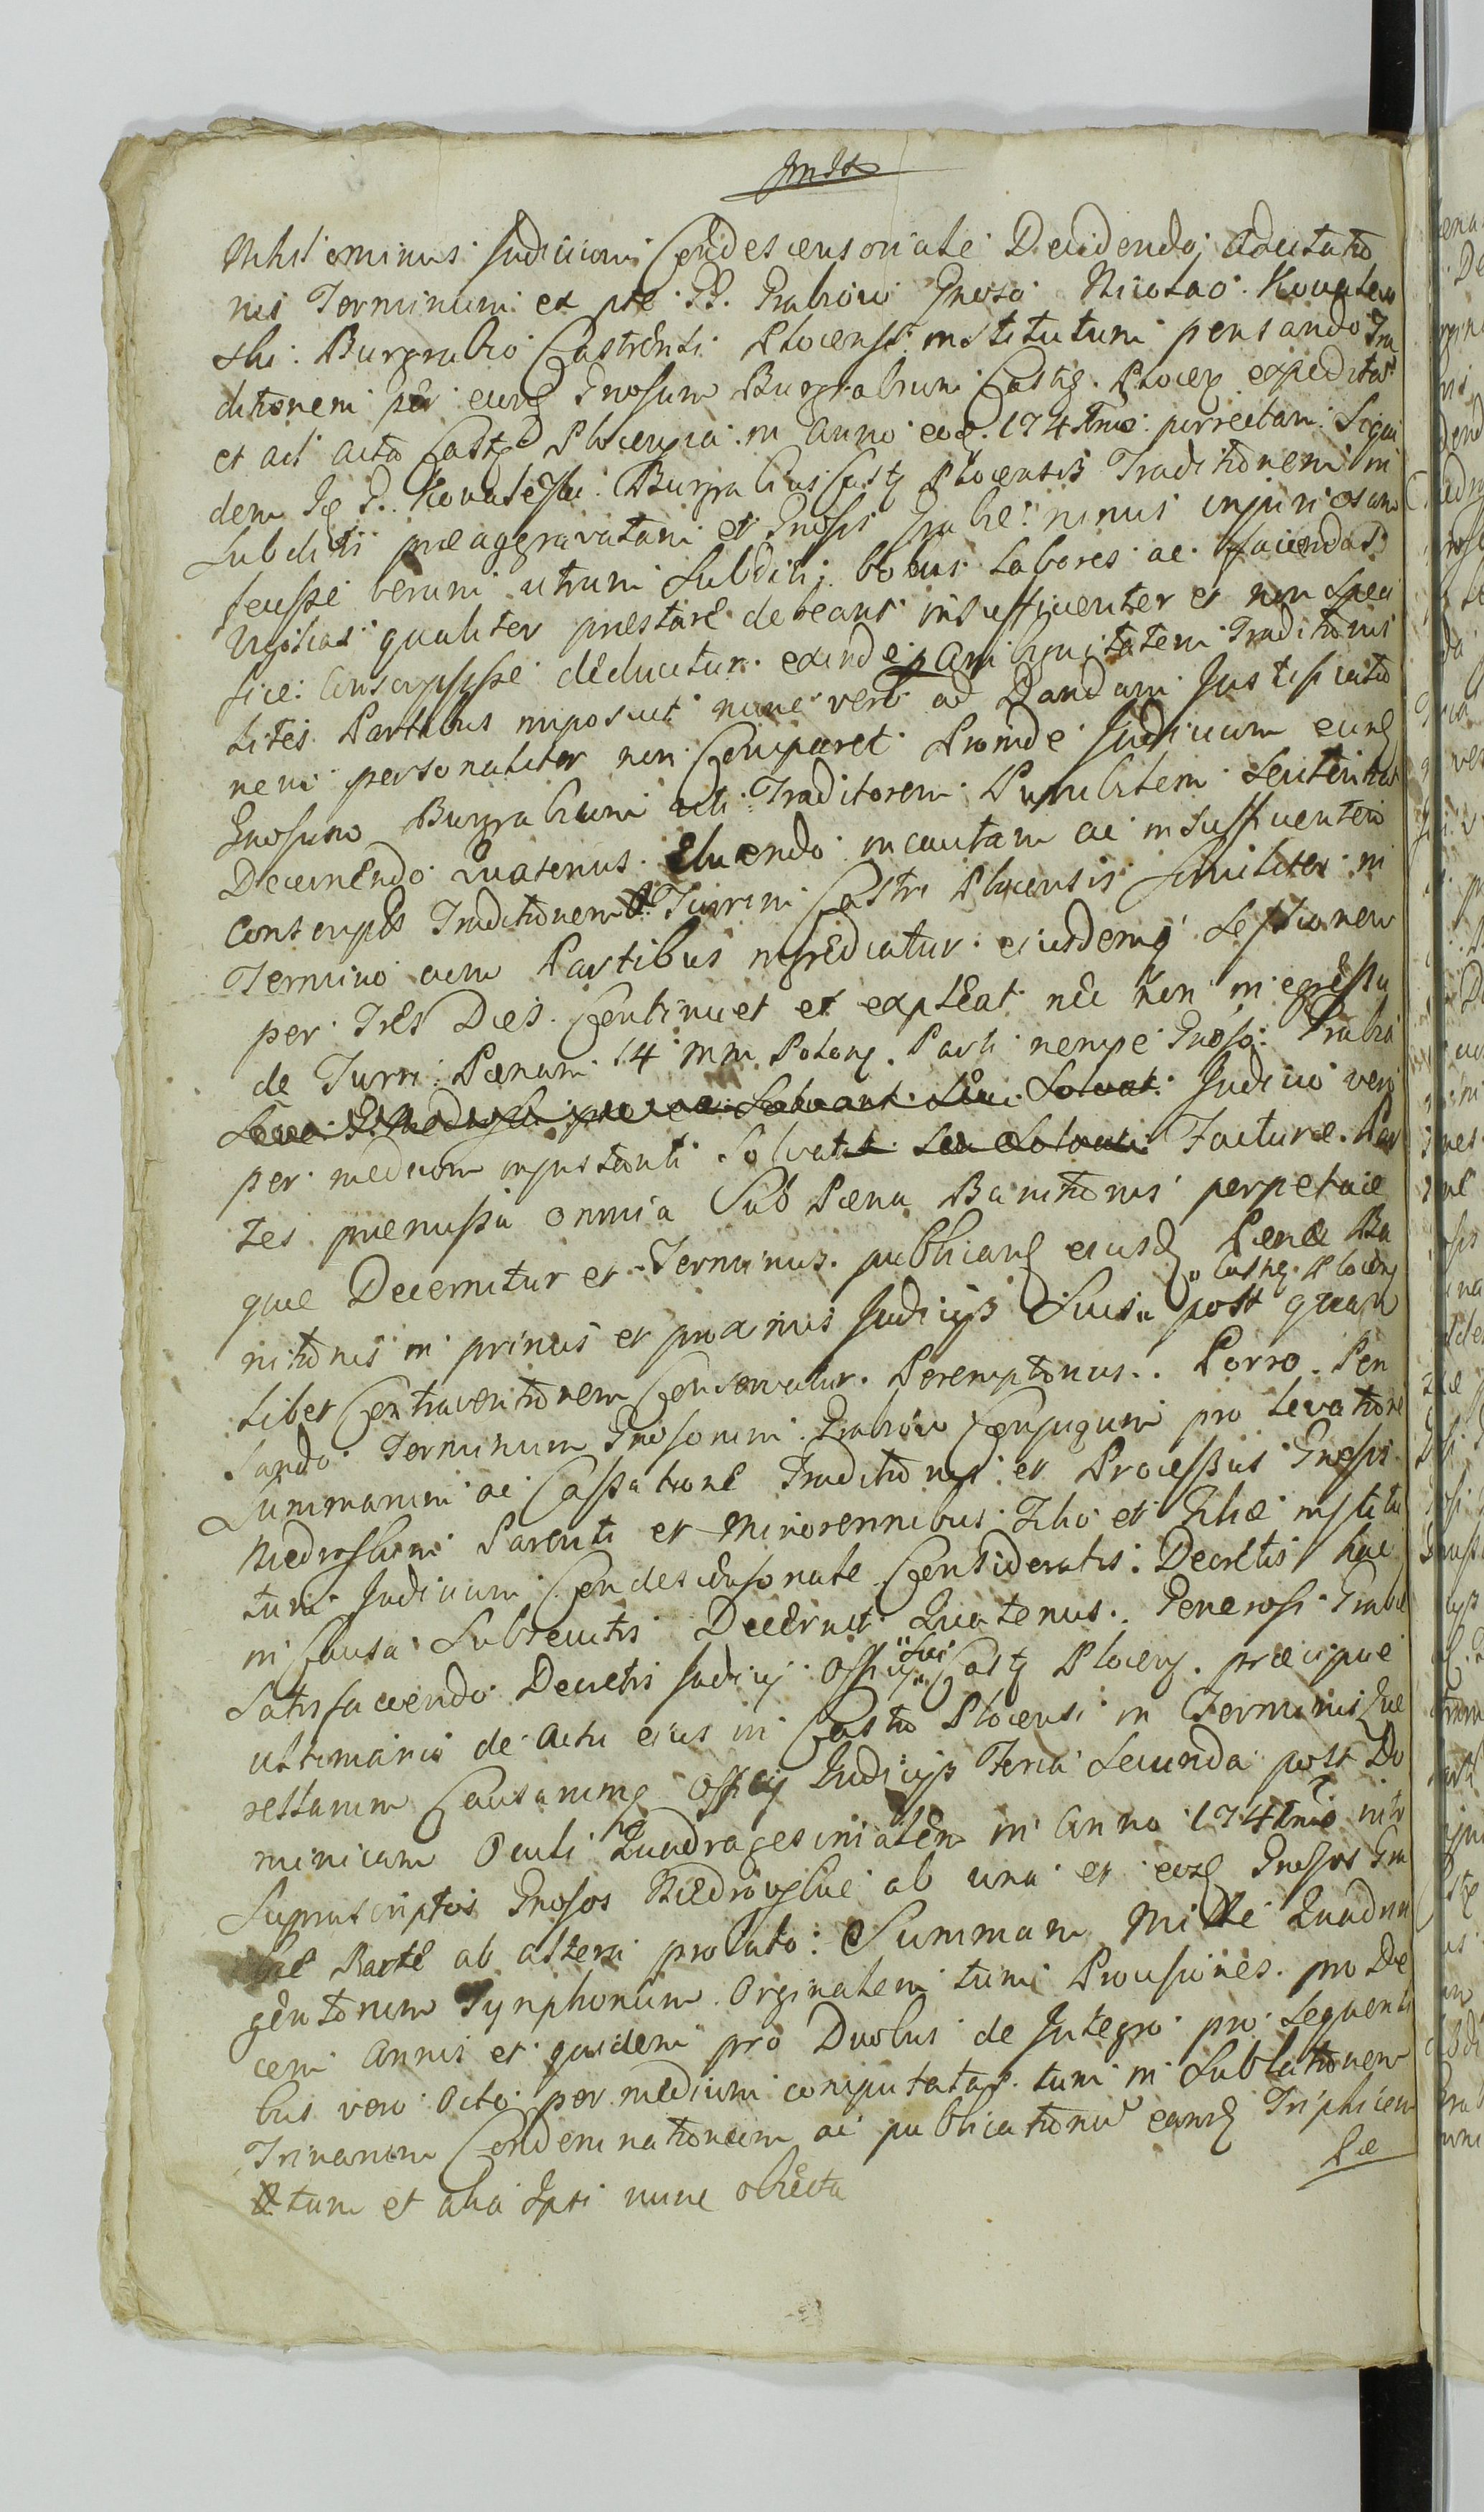 Nihilominus Judicium Condescensoriale Decidendo Adcitatio
nis Terminum ex pte GG. Grabow Gnoso Nicolao Kowalew
ski Burgrabio Castrensi Plocensi institutum pensando Tra
ditionem per eund Gnosum Burgrabium Castr. Plocen expeditam
et ad acta Castr Plocensia in Anno eod. 174 porrectam Siqui
dem G. Kowalewski Burgrabius Castr Plocensis Traditionem in
Subditis praeaggravatam et Gnosis Grabc: nimis injuriosam
fecisse verum utrum Subditi bobus Labores ac faciendas
Vigilias qualiter praestare debeant insufficienter et non Speci
fice Conscripsisse deducitur exinde Ambiguitatem Traditionis
Lites Partibus imposuit nunc vero ad Dandam Justificatio
nem personaliter non Comparet Proinde Judicium eund
Gnosum Burgrabium uti Traditorem Punibilem Sentential
Decernendo Quatenus Eluendo incautam ac insufficienter
Conscriptis Traditionem Turrim Castri Plocensis Similiter in
Termino cum Partibus ingrediatur ejusdemq Sessionem
per Tres Dies Continuet et expleat nec non in egressu
de Turri Paenam 14 mm Polon. Parti nempe Gnoso Grabia
Solvat Judicio vero
per medium injustanti Solvat Facturae Par
tes praemissa omnia Sub Paena Banitionis perpetuae
quae Decernitur et Terminus publicand ejusd Paenae Ba
Castr. Plocen
nitionis in primis et proximis Judicijs Suis post quam
libet Contraventionem Conservatur Peremptorius. Porro Pen
sando Terminum Gnosorum Grabow Conjugum pro levatione
Summarum ac Cassatione Traditionis et Processus Gnosis
Niedroskim Parenti et Minorennibus Filio et Filiae institu
tum Judicium Condescensoriale Consideratis Decretis hac
in Causa Subsecutis Decernit Quatenus Generosi Grabie
Satisfaciendo Decretis Judicij Officij Sui Castr Plocen. praecipue
ultimario de actu ejus in Castro Plocensi in Terminis Que
rellarum Causarumq Officij Judicijs Feria Secunda post Do
minicam Oculi Quadragesimalem in Anno 174 intr
Suprascriptos Gnosos Niedrowskie ab una et eosd Gnosos Gra
bie Parte ab altera prolato Summam Mille Quadrin
gentorum Tynphonum Orginalem tum Provisiones pro De
cem Annis et quidem pro Duobus de Integro pro Sequenti
bus vero Octo per medium computatas tum in Sublationem
Trinarum Condemnationum ac publicationum earund Triplicem
Pae
tum et alia Ipsi nunc objecta